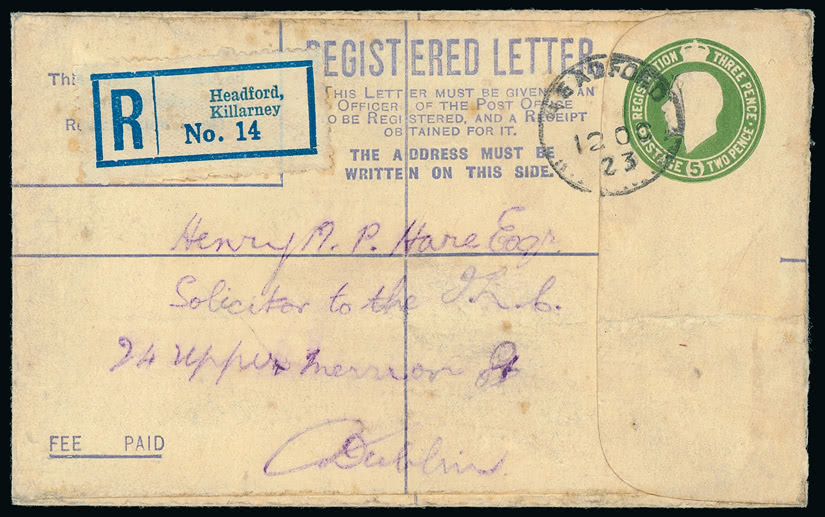 REGISTERED LETTER
THIS LETTER MUST BE GIVEN TO AN
OFFICER OF THE POST OFFICE
TO BE REGISTERED, AND A RECEIPT
OBTAINED FOR IT.
THE ADDRESS MUST BE
WRITTEN ON THIS SIDE.
Thi
Re
R
Headford,
Killarney
No. 14
HEADFORD
12 OC
23
REGISTRATION THREE PENCE
POSTAGE (5) TWO PENCE
Henry A. P. Hare Esqr.
Solicitor to the I.L.C.
24 Upper Merrion St
Dublin.
FEE PAID